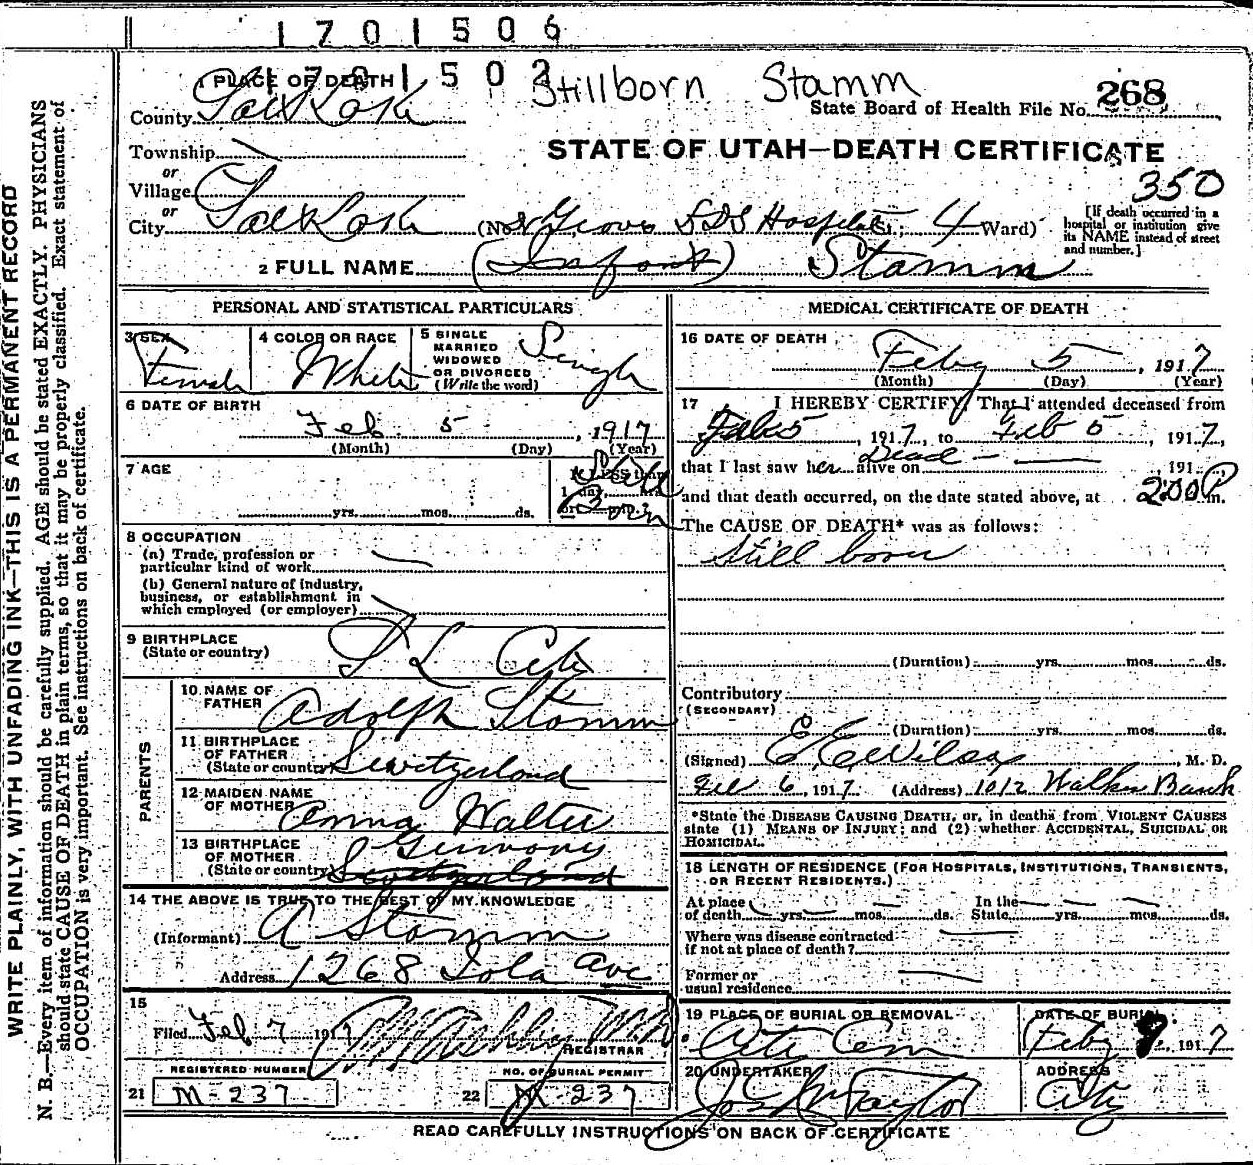 1701506
1701503
Stillborn Stamm
1 PLACE OF DEATH
State Board of Health File No. 268
County Salt Lake
STATE OF UTAH—DEATH CERTIFICATE
Township
or
Village
350
or
City Salt Lake (No. Groves LDS Hospital St.; 4 Ward)
[If death occurred in a hospital or institution give its NAME instead of street and number.]
2 FULL NAME (Infant) Stamm
PERSONAL AND STATISTICAL PARTICULARS
3 SEX Female
4 COLOR OR RACE White
5 SINGLE MARRIED WIDOWED OR DIVORCED (Write the word) Single
6 DATE OF BIRTH
Feb. 5, 1917
(Month) (Day) (Year)
7 AGE
yrs. mos. ds.
If LESS than 1 day, hrs. or min.?
Still Born
8 OCCUPATION
(a) Trade, profession or particular kind of work
(b) General nature of industry, business, or establishment in which employed (or employer)
9 BIRTHPLACE
(State or country) S L City
PARENTS
10 NAME OF FATHER Adolph Stamm
11 BIRTHPLACE OF FATHER (State or country) Switzerland
12 MAIDEN NAME OF MOTHER Anna Walter
13 BIRTHPLACE OF MOTHER (State or country) Germany
Switzerland
14 THE ABOVE IS TRUE TO THE BEST OF MY KNOWLEDGE
(Informant) A Stamm
Address 1268 Iola Ave
15
Filed Feb 7 1917
REGISTRAR
REGISTERED NUMBER
21 M-237
NO. OF BURIAL PERMIT
22 M-237
MEDICAL CERTIFICATE OF DEATH
16 DATE OF DEATH
Feby 5, 1917
(Month) (Day) (Year)
17 I HEREBY CERTIFY, That I attended deceased from
Feb 5, 1917, to Feb 5, 1917,
that I last saw her alive on Dead, 191 ,
and that death occurred, on the date stated above, at 2:00 P m.
The CAUSE OF DEATH* was as follows:
Still born
(Duration) yrs. mos. ds.
Contributory
(SECONDARY)
(Duration) yrs. mos. ds.
(Signed) E. E. Wilcox, M. D.
Feb 6, 1917. (Address) 1012 Walker Bank
*State the DISEASE CAUSING DEATH, or, in deaths from VIOLENT CAUSES
state (1) MEANS OF INJURY; and (2) whether ACCIDENTAL, SUICIDAL OR
HOMICIDAL.
18 LENGTH OF RESIDENCE (FOR HOSPITALS, INSTITUTIONS, TRANSIENTS,
OR RECENT RESIDENTS.)
At place of death yrs. mos. ds. In the State yrs. mos. ds.
Where was disease contracted
if not at place of death?
Former or
usual residence
19 PLACE OF BURIAL OR REMOVAL
City Cem
DATE OF BURIAL
Feby 9, 1917
20 UNDERTAKER
Jos Wm Taylor
ADDRESS
City
READ CAREFULLY INSTRUCTIONS ON BACK OF CERTIFICATE
WRITE PLAINLY, WITH UNFADING INK—THIS IS A PERMANENT RECORD
N. B.—Every item of information should be carefully supplied. AGE should be stated EXACTLY. PHYSICIANS
should state CAUSE OF DEATH in plain terms, so that it may be properly classified. Exact statement of
OCCUPATION is very important. See instructions on back of certificate.